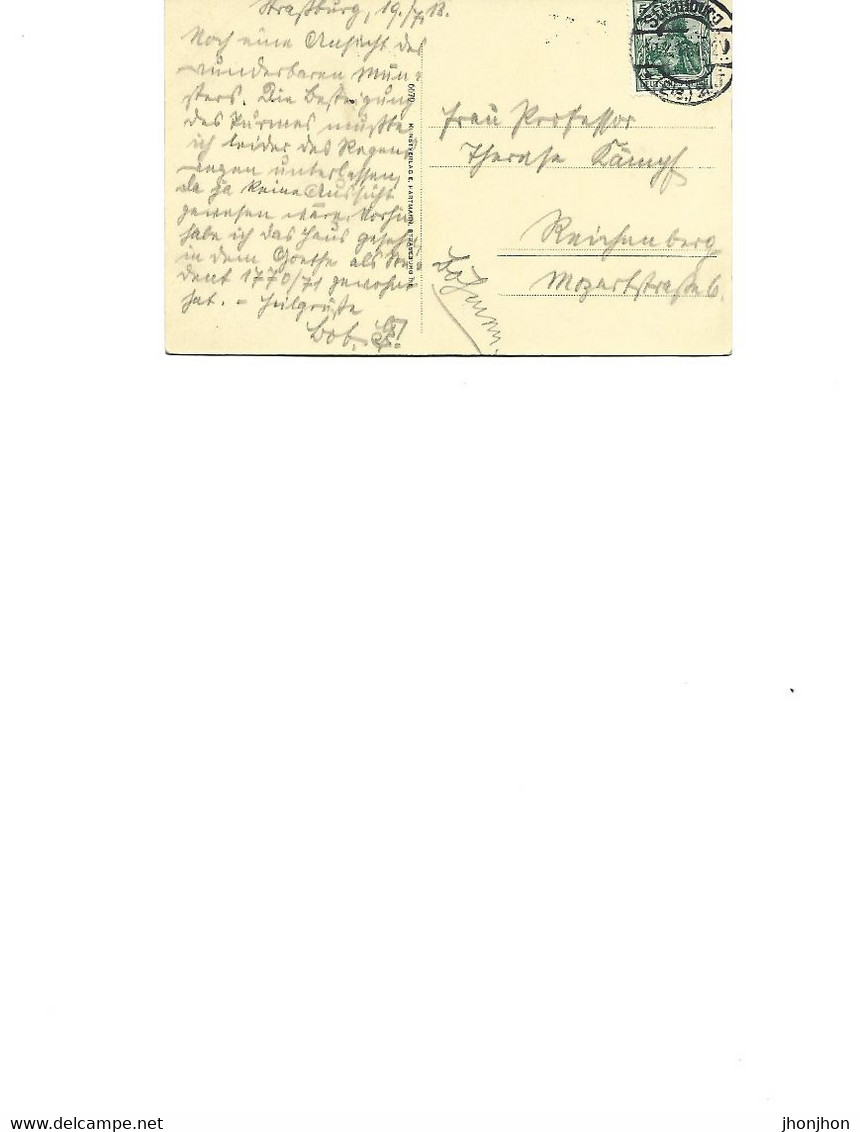 Straßburg, 19./7. 13.
Noch eine Ansicht des
wunderbaren Mün-
sters. Die Besteigung
des Turmes mußte
ich leider des Regens
wegen unterlassen,
da ja keine Aussicht
gewesen wäre. Vorhin
habe ich das Haus gesehen
in dem Goethe als Stu-
dent 1770/71 gewohnt
hat. - Heilgrüße
Bob.
6670 KUNSTVERLAG E. HARTMANN, STRASSBURG
Frau Professor
Therese Kämpf
Reichenberg
Mozartstraße 6.
Böhmen.
STRASSBURG
(ELS.)
delcampe.net
jhonjhon